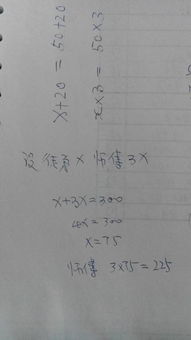 x+20=50+20
x×3=50×3
设徒弟x 师傅3x
x+3x=300
4x=300
x=75
师傅 3×75=225